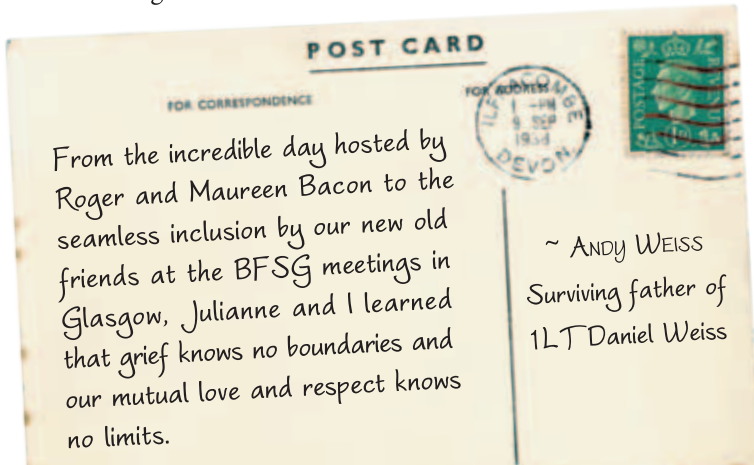 POST CARD
FOR CORRESPONDENCE
FOR ADDRESS
ILFRACOMBE
1 - PM
9 SEP
DEVON
POSTAGE
From the incredible day hosted by
Roger and Maureen Bacon to the
seamless inclusion by our new old
friends at the BFSG meetings in
Glasgow, Julianne and I learned
that grief knows no boundaries and
our mutual love and respect knows
no limits.
~ ANDY WEISS
Surviving father of
1LT Daniel Weiss